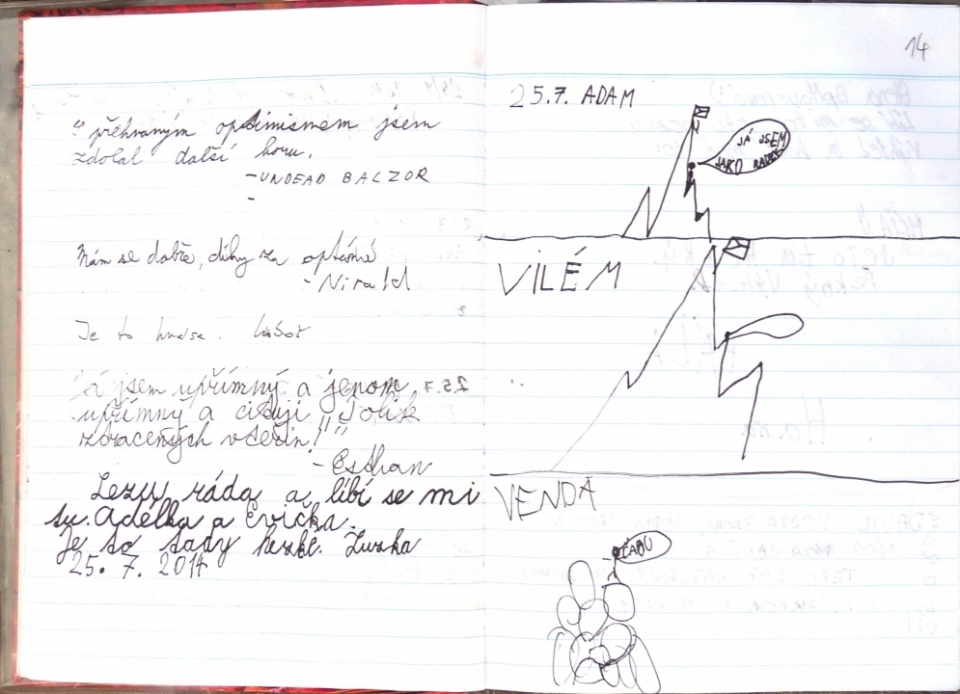 "přehraným optimismem jsem
zdolal další horu.
-UNDEAD BALZOR
-
Mám se dobře, díky za optání
-Nirald
Je to hudsa. Luboš
á jsem upřímný a jenom
upřímný a cituji "Tolik
ztracených vteřin!"
-Esthan
Lezu ráda a líbí se mi
tu. Adélka a Evička.
Je to tady hezké. Zuzka
25. 7. 2014
14
25.7. ADAM
JÁ JSEM
JAKO RADEK
VILÉM
VENDA